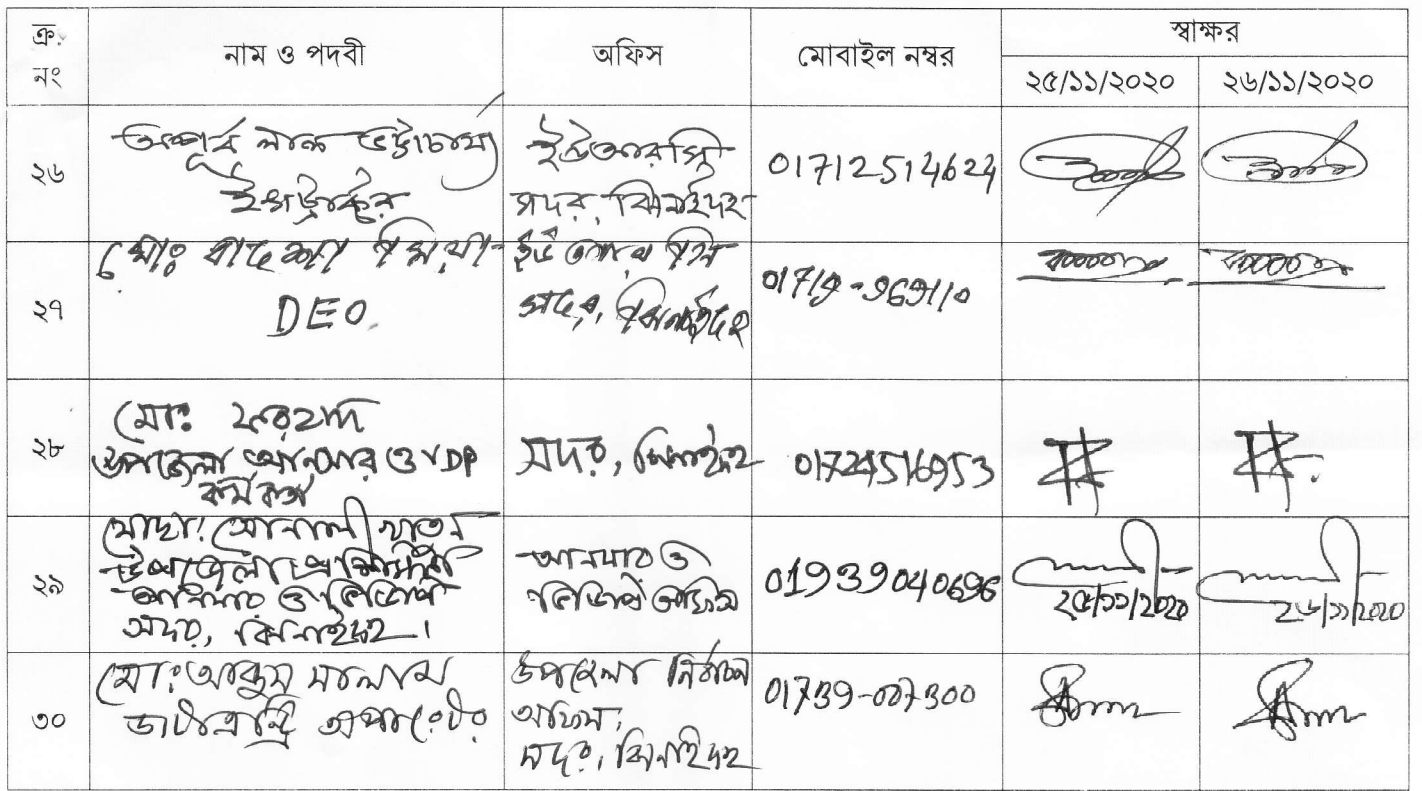 ক্র.
নং
নাম ও পদবী
অফিস
মোবাইল নম্বর
স্বাক্ষর
২৫/১১/২০২০
২৬/১১/২০২০
২৬
অপূর্ব লাল ভট্টাচার্য্য
ইন্সট্রাক্টর
ইউআরসি
সদর, ঝিনাইদহ
01712514624
২৭
মোঃ বাদশা মিয়া
DEO
ইউআরসি
সদর, ঝিনাইদহ
২৮
মোঃ ফরহাদ
উপজেলা আনসার ও VDP
কর্মকর্তা
সদর, ঝিনাইদহ
২৯
মোছাঃ সোনালী খাতুন
উপজেলা প্রশিক্ষিকা
আনসার ও ভিডিপি
সদর, ঝিনাইদহ।
আনসার ও
ভিডিপি অফিস
01939040696
২৫/১১/2020
২৬/১১/2020
৩০
মোঃ আব্দুস সালাম
ডাটা এন্ট্রি অপারেটর
উপজেলা নির্বাচন
অফিস,
সদর, ঝিনাইদহ
01739-007300